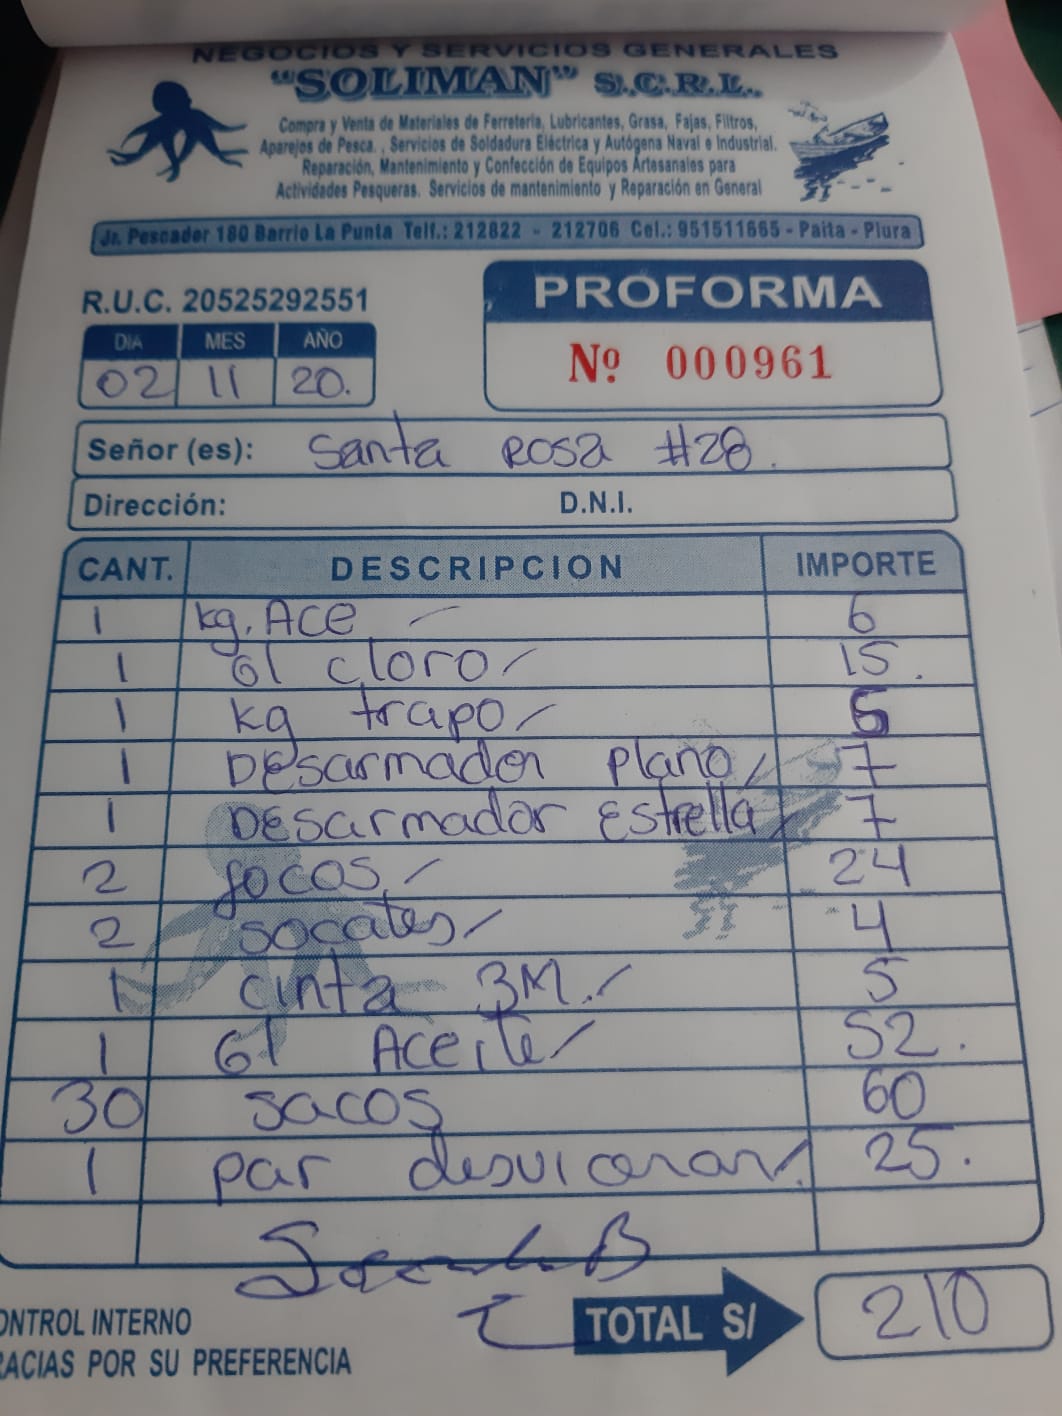 NEGOCIOS Y SERVICIOS GENERALES
"SOLIMAN" S.C.R.L.
Compra y Venta de Materiales de Ferretería, Lubricantes, Grasa, Fajas, Filtros,
Aparejos de Pesca. , Servicios de Soldadura Eléctrica y Autógena Naval e Industrial.
Reparación, Mantenimiento y Confección de Equipos Artesanales para
Actividades Pesqueras. Servicios de mantenimiento y Reparación en General
Jr. Pescador 180 Barrio La Punta Telf.: 212822 - 212706 Cel.: 951511665 - Paita - Piura
R.U.C. 20525292551
PROFORMA
DIA MES AÑO
Nº 000961
02 11 20.
Señor (es): Santa Rosa #28.
Dirección: D.N.I.
CANT. DESCRIPCION IMPORTE
1 kg. Ace 6
1 Gl cloro 15.
1 kg trapo 5
1 Desarmador plano 7
1 Desarmador Estrella 7
2 focos 24
2 socates 4
1 cinta 3M. 5
1 Gl Aceite 52.
30 sacos 60
1 par 25.
ONTROL INTERNO
TOTAL S/ 210
RACIAS POR SU PREFERENCIA